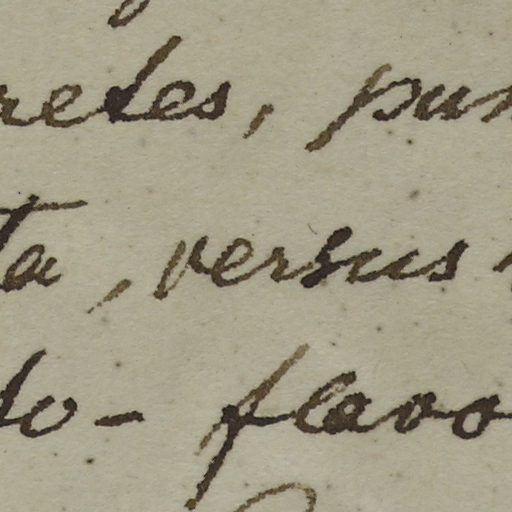 retes, pun
ta, versus
do-flavo